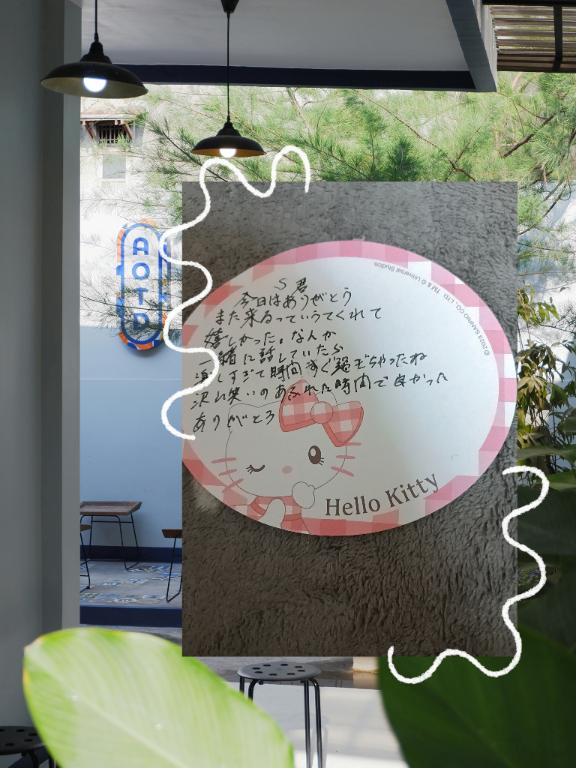 AOTD
© 2023 SANRIO CO., LTD. TM & © Universal Studios
S君
今日はありがとう
また来るっていうてくれて
嬉しかった。なんか
緒に話していたら
しすぎて時間すぐ過ぎちゃったね
沢山笑いのあふれた時間で良かった
ありがとう
Hello Kitty